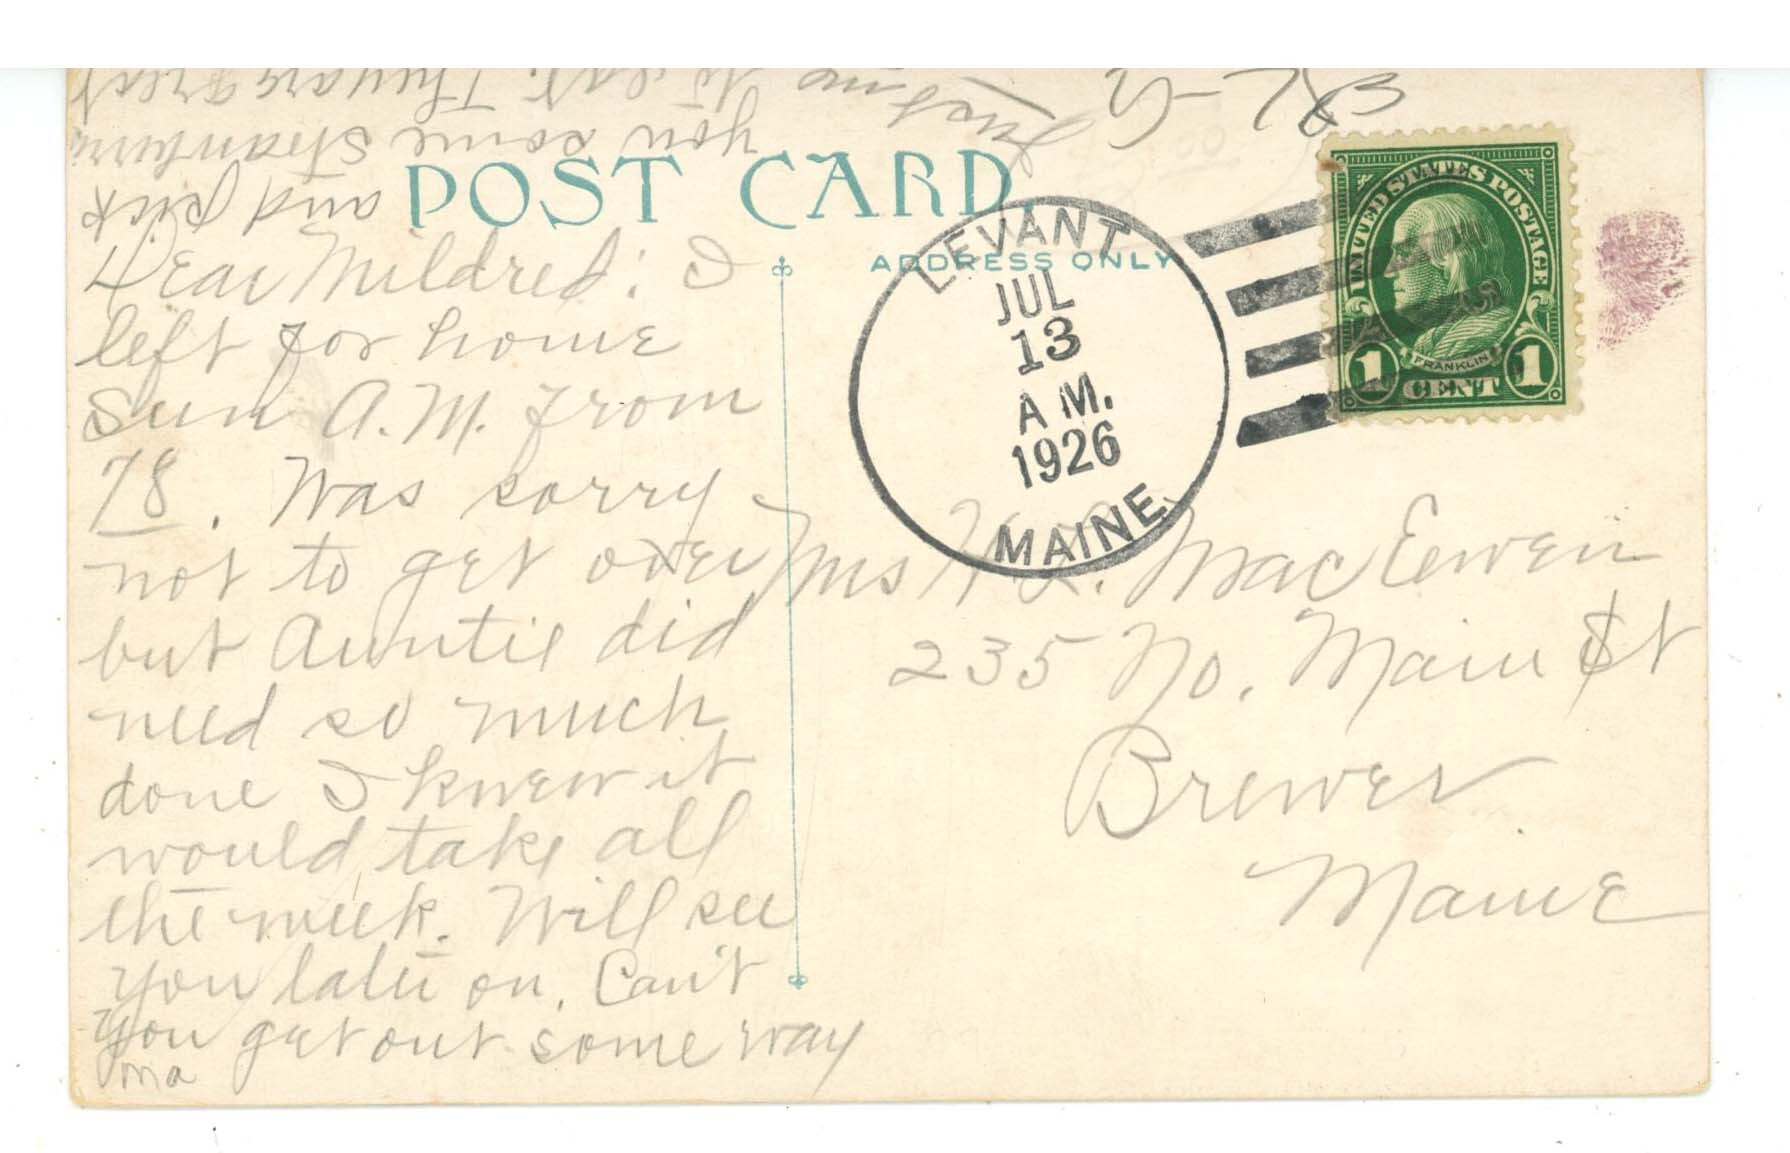 POST CARD.
ADDRESS ONLY
Dear Mildred: I
left for home
Sun A.M. from
78. Was sorry
not to get over
but Auntie did
need so much
done I knew it
would take all
the week. Will see
you later on. Can't
you get out some way
and pick
you some strawberry
to eat. They are great
Just
Ma
LEVANT
JUL
13
A M.
1926
MAINE
UNITED STATES POSTAGE
FRANKLIN
1 CENT 1
Mrs H. L. MacEewen
235 No. Main St
Brewer
Maine